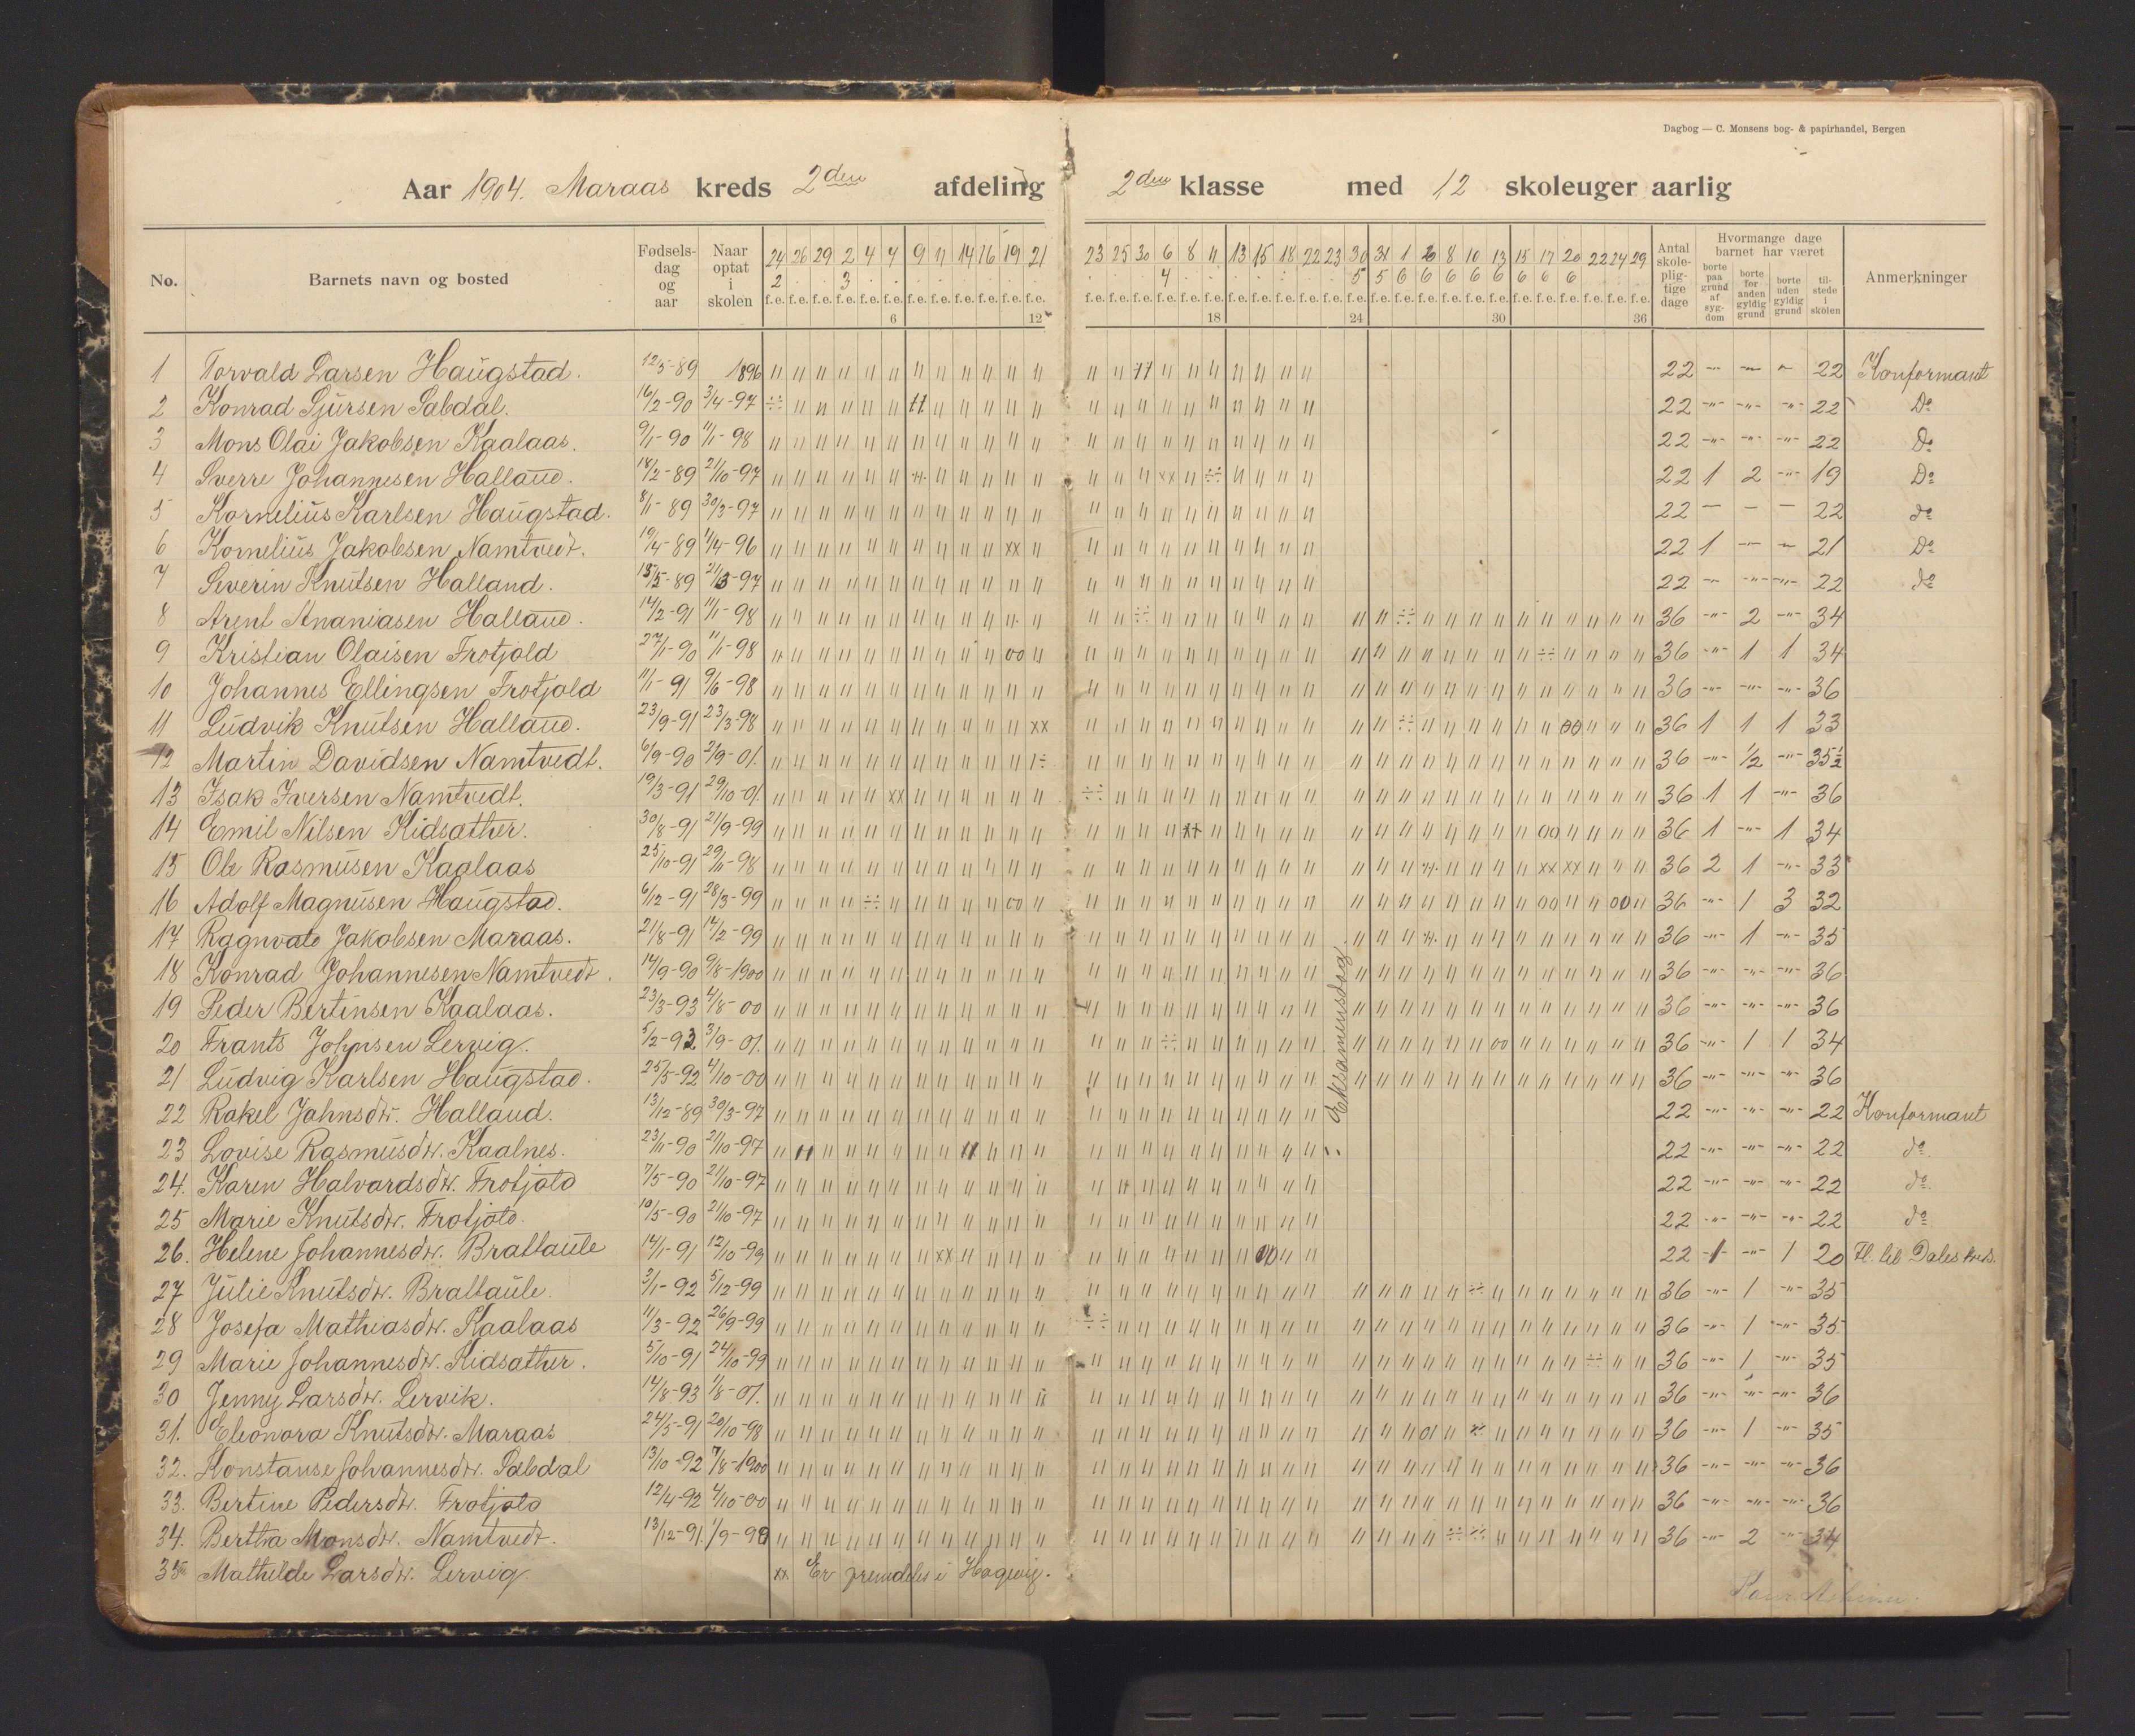 Dagbog — C. Monsens bog- & papirhandel, Bergen
Aar 1904. Maraas kreds 2den afdeling 2den klasse med 12 skoleuger aarlig
No. Barnets navn og bosted Fødsels-dag og aar Naar optat i skolen 24 26 29 2 4 7 9 11 14 16 19 21 23 25 30 6 8 11 13 15 18 22 23 30 31 1 6 8 10 13 15 17 20 22 24 29 Antal skole-plig-tige dage Hvormange dage barnet har været Anmerkninger
2 3 4 5 5 6 6 6 6 6 6 6 6
borte paa grund af syg-dom borte for anden gyldig grund borte uden gyldig grund til-stede i skolen
f.e. f.e. f.e. f.e. f.e. f.e. f.e. f.e. f.e. f.e. f.e. f.e. f.e. f.e. f.e. f.e. f.e. f.e. f.e. f.e. f.e. f.e. f.e. f.e. f.e. f.e. f.e. f.e. f.e. f.e. f.e. f.e. f.e. f.e. f.e. f.e.
6 12 18 24 30 36
1 Torvald Larsen Haugstad. 12/5-89 1896 22 22 Konformant
2 Konrad Sjursen Sabdal. 16/2-90 3/4-97 22 -"- -"- -"- 22 Do
3 Mons Olai Jakobsen Kaalaas. 9/1-90 11/1-98 22 -"- -"- -"- 22 Do
4 Sverre Johannesen Halland. 18/2-89 21/10-97 22 1 2 -"- 19 Do
5 Kornelius Karlsen Haugstad. 8/1-89 30/3-97 22 — — — 22 do
6 Kornelius Jakobsen Namtvedt. 19/4-89 11/4-96 22 1 21 Do
7 Severin Knutsen Halland. 22 22 do
8 Arent Ananiasen Halland. 14/2-91 11/1-98 36 -"- 2 -"- 34
9 Kristian Olaisen Frotjold 27/1-90 11/1-98 36 -"- 1 1 34
10 Johannes Ellingsen Frotjold 11/1-91 9/6-98 36 -"- -"- -"- 36
11 Ludvik Knutsen Halland. 23/9-91 23/3-98 36 1 1 1 33
12 Martin Davidsen Namtvedt. 6/9-90 2/9-01. 36 -"- 1/2 -"- 35 1/2
13 Isak Iversen Namtvedt. 19/3-91 29/10-01. 36 1 1 -"- 36
14 Emil Nilsen Kidsæther. 30/8-91 21/9-99 36 1 -"- 1 34
15 Ole Rasmusen Kaalaas 25/10-91 29/11-98 36 2 1 -"- 33
16 Adolf Magnusen Haugstad. 6/12-91 28/3-99 36 -"- 1 3 32
17 Ragnvald Jakobsen Maraas. 21/8-91 14/2-99 36 -"- 1 -"- 35
18 Konrad Johannesen Namtvedt. 14/9-90 9/8-1900 36 -"- -"- -"- 36
19 Peder Bertinsen Kaalaas. 23/3-93 4/8-00 36 -"- -"- -"- 36
20 Frants Johnsen Lervig. 5/2-92 3/9-01. 36 -"- 1 1 34
21 Ludvig Karlsen Haugstad. 25/5-92 4/10-00 36 -"- -"- -"- 36
22 Rakel Johnsdtr. Halland. 13/12-89 30/3-97 22 -"- -"- -"- 22 Konformant
23 Lovise Rasmusdtr. Kaalnes. 23/11-90 21/10-97 22 -"- -"- -"- 22 do.
24. Karen Halvardsdtr. Frotjold 7/5-90 21/10-97 22 -"- -"- -"- 22 do.
25 Marie Knutsdtr. Frotjold. 10/5-90 21/10-97 22 -"- -"- -"- 22 do
26. Helene Johannesdtr. Brattaule 14/1-91 12/10-99 22 1 -"- 1 20 Fl. til Dales kreds.
27 Julie Knutsdtr. Brattaule. 3/1-92 5/12-99 36 -"- 1 -"- 35
28 Josefa Mathiasdtr. Kaalaas 11/3-92 26/9-99 36 -"- 1 -"- 35
29 Marie Johannesdtr. Kidsæther. 5/10-91 24/10-99 36 -"- 1 -"- 35
30 Jenny Larsdtr. Lervik. 14/8-93 1/8-01. 36 -"- -"- -"- 36
31. Eleonora Knutsdtr. Maraas 24/5-91 20/10-98 36 -"- 1 -"- 35
32. Konstanse Johannesdtr. Sabdal 13/10-92 7/8-1900 36 -"- -"- -"- 36
33. Bertine Pedersdtr. Frotjold 12/4-92 4/10-00 36 -"- -"- -"- 36
34. Bertha Monsdtr. Namtvedt. 13/12-91. 1/9-98 36 -"- 2 -"- 34
35 Mathilde Larsdtr. Lervig. xx Er fremdeles i Hagevig.
Eksamensdag